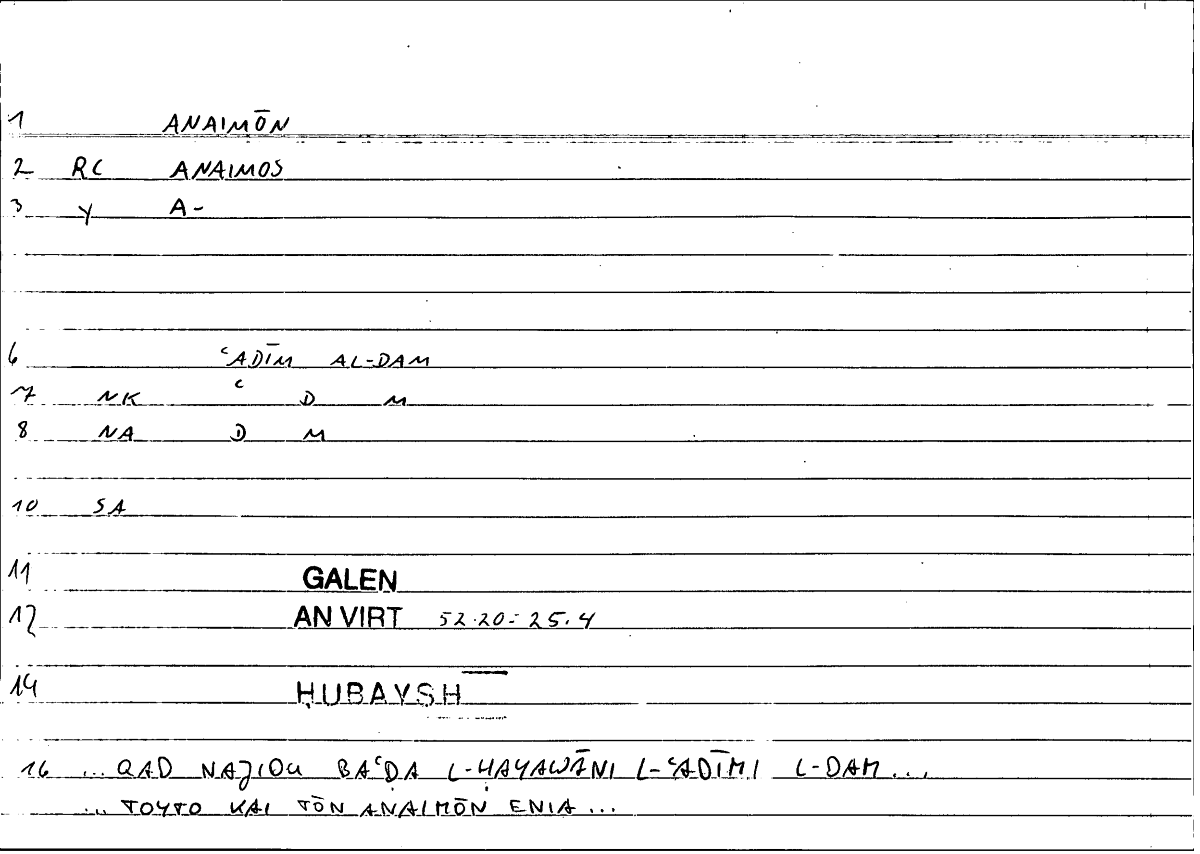 1 ANAIMŌN
2 RC ANAIMOS
3 Y A-
6 ʿADĪM AL-DAM
7 NK ʿ D M
8 NA D M
10 SA
11 GALEN
12 AN VIRT 52.20 = 25.4
14 ḤUBAYSH
16 ... QAD BAʿDA L-ḤAYAWĀNI L-ʿADĪMI L-DAM ...
... TOYTO KAI TŌN ANAIMŌN ENIA ...